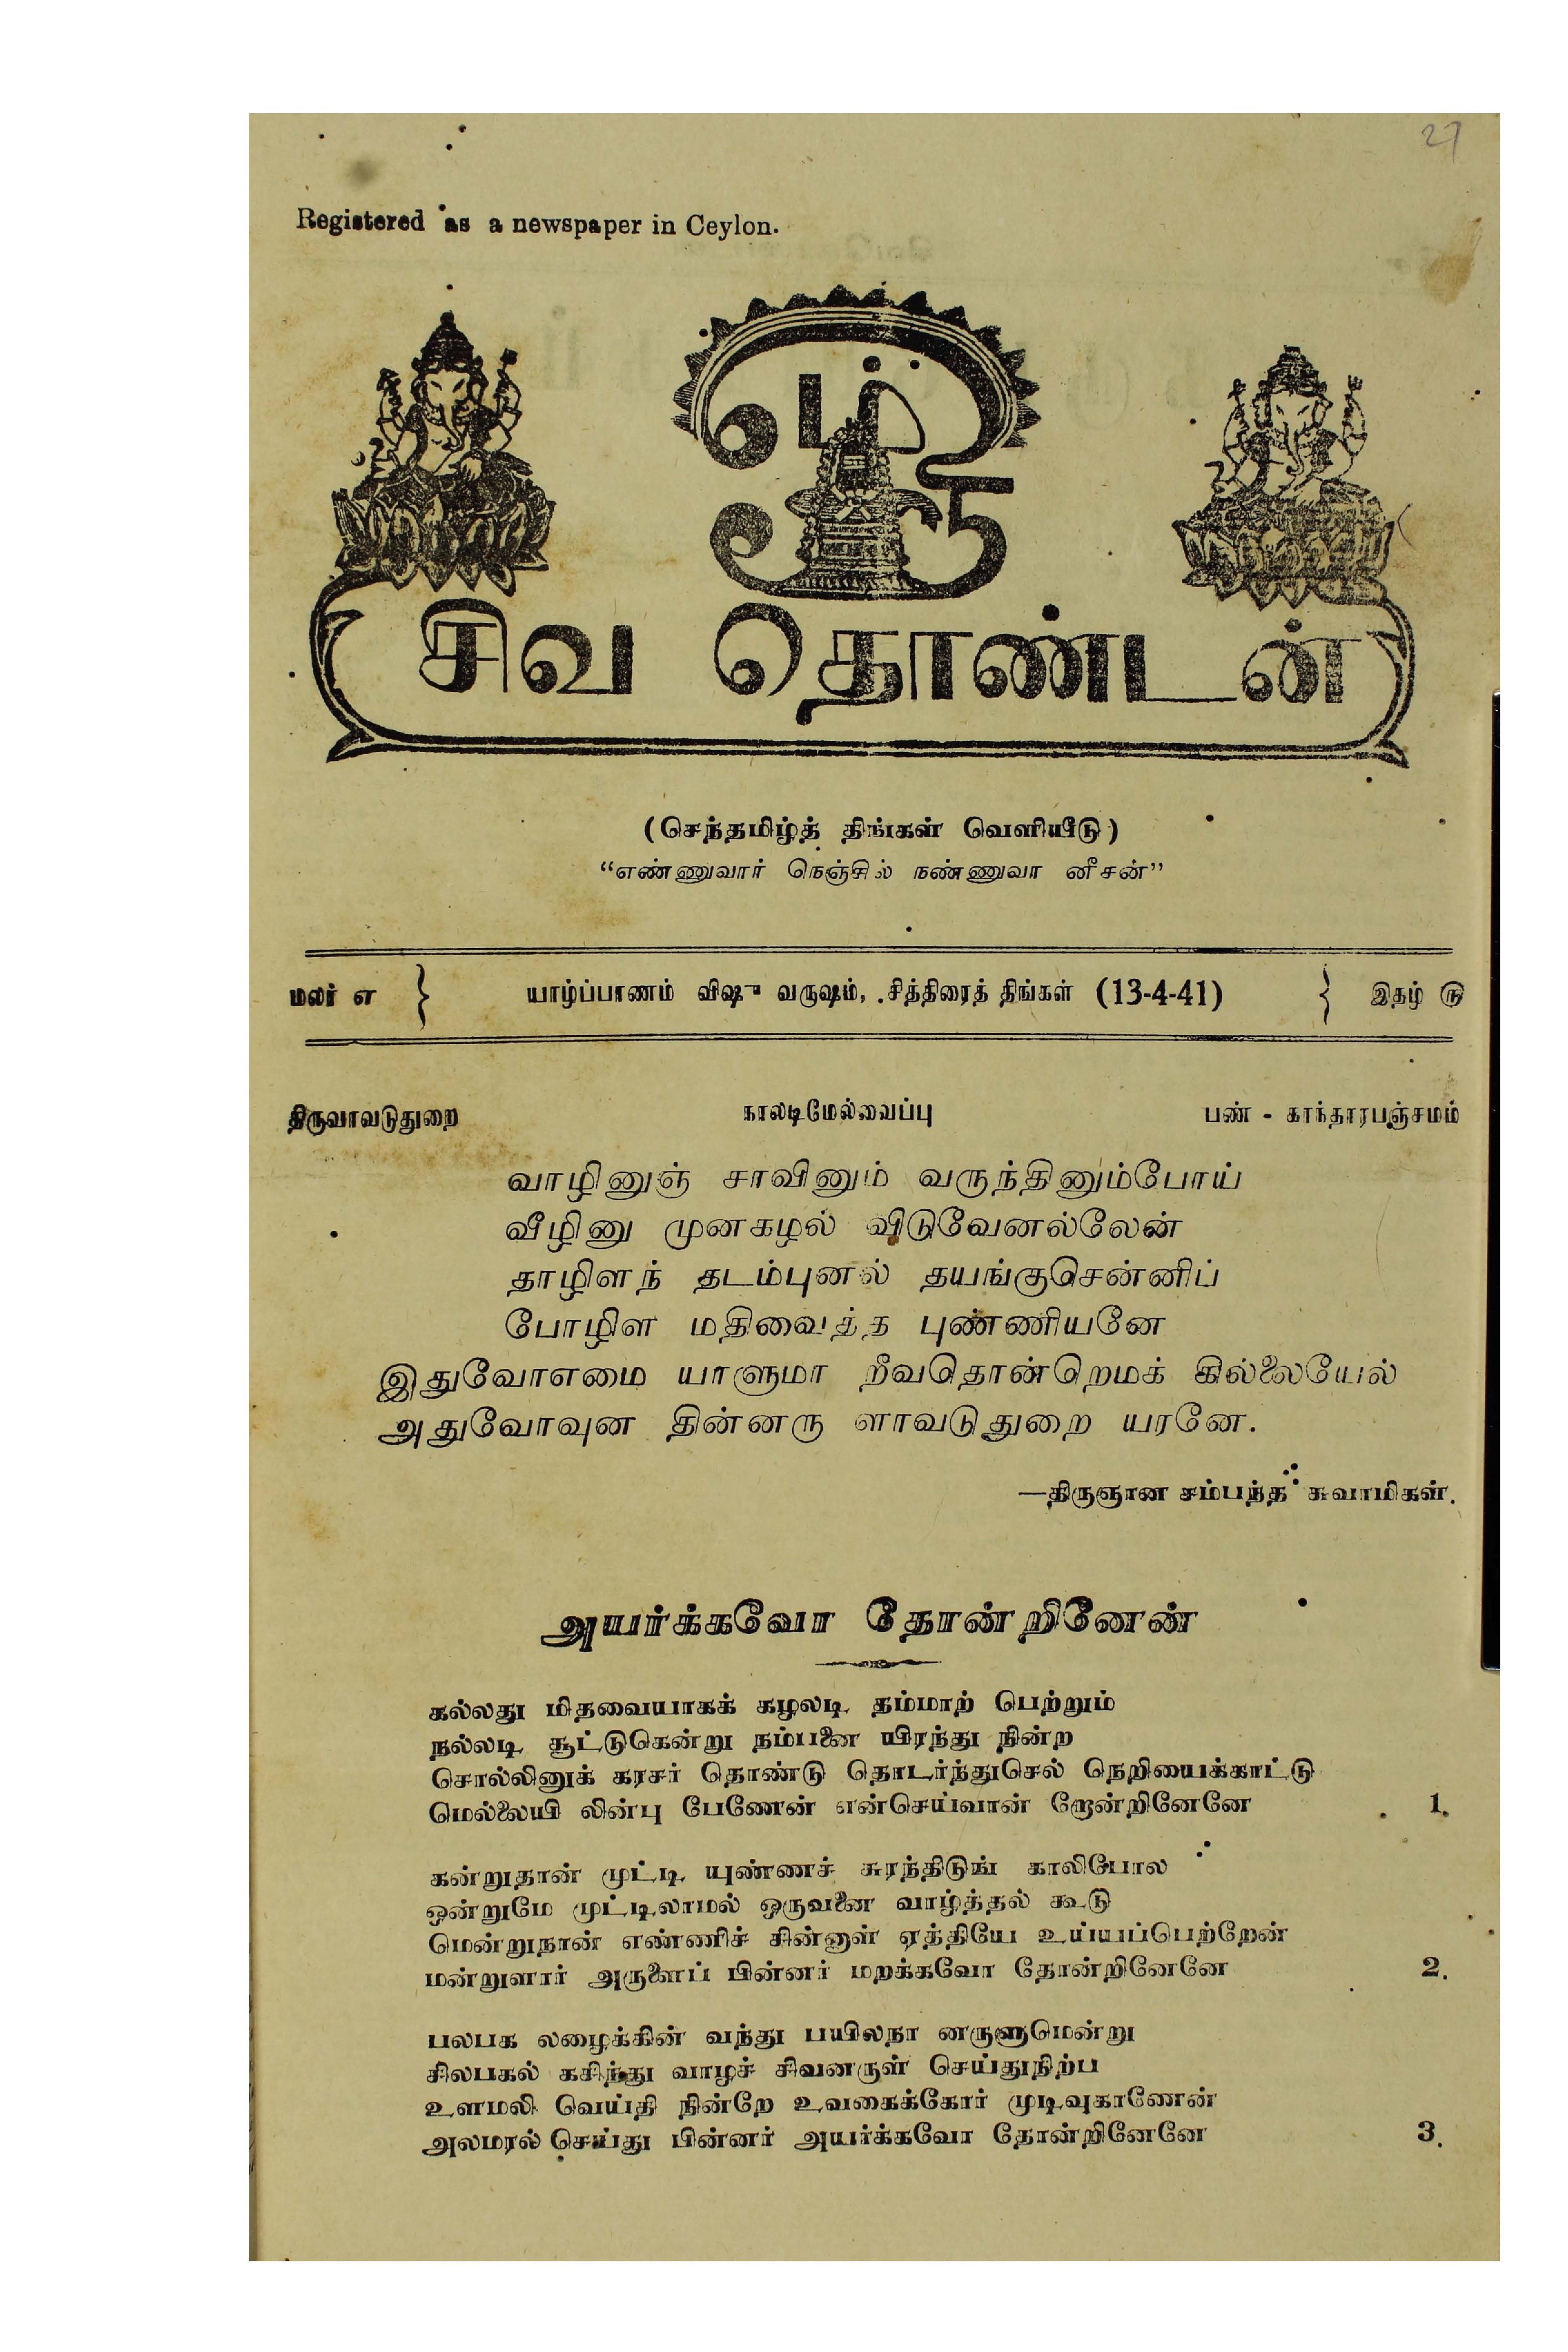 27
Registered as a newspaper in Ceylon.
ஓம்
சிவ தொண்டன்
(செந்தமிழ்த் திங்கள் வெளியீடு)
“எண்ணுவார் நெஞ்சில் நண்ணுவா னீசன்”
மலர் எ } யாழ்ப்பாணம் விஷு வருஷம், சித்திரைத் திங்கள் (13-4-41) { இதழ் ரு
திருவாவடுதுறை நாலடிமேல்வைப்பு பண் - காந்தாரபஞ்சமம்
வாழினுஞ் சாவினும் வருந்தினும்போய்
வீழினு முனகழல் விடுவேனல்லேன்
தாழிளந் தடம்புனல் தயங்குசென்னிப்
போழிள மதிவைத்த புண்ணியனே
இதுவோஎமை யாளுமா றீவதொன்றெமக் கில்லையேல்
அதுவோவுன தின்னரு ளாவடுதுறை யரனே.
—திருஞான சம்பந்த சுவாமிகள்.
அயர்க்கவோ தோன்றினேன்
கல்லது மிதவையாகக் கழலடி தம்மாற் பெற்றும்
நல்லடி சூட்டுகென்று நம்பனை யிரந்து நின்ற
சொல்லினுக் கரசர் தொண்டு தொடர்ந்துசெல் நெறியைக்காட்டு
மெல்லையி லின்பு பேணேன் என்செய்வான் றோன்றினேனே 1.
கன்றுதான் முட்டி யுண்ணச் சுரந்திடுங் காலிபோல
ஒன்றுமே முட்டிலாமல் ஒருவனை வாழ்த்தல் கூடு
மென்றுநான் எண்ணிச் சின்னாள் ஏத்தியே உய்யப்பெற்றேன்
மன்றுளார் அருளைப் பின்னர் மறக்கவோ தோன்றினேனே 2.
பலபக லழைக்கின் வந்து பயிலநா னருளுமென்று
சிலபகல் கசிந்து வாழச் சிவனருள் செய்துநிற்ப
உளமலி வெய்தி நின்றே உவகைக்கோர் முடிவுகாணேன்
அலமரல் செய்து பின்னர் அயர்க்கவோ தோன்றினேனே 3.